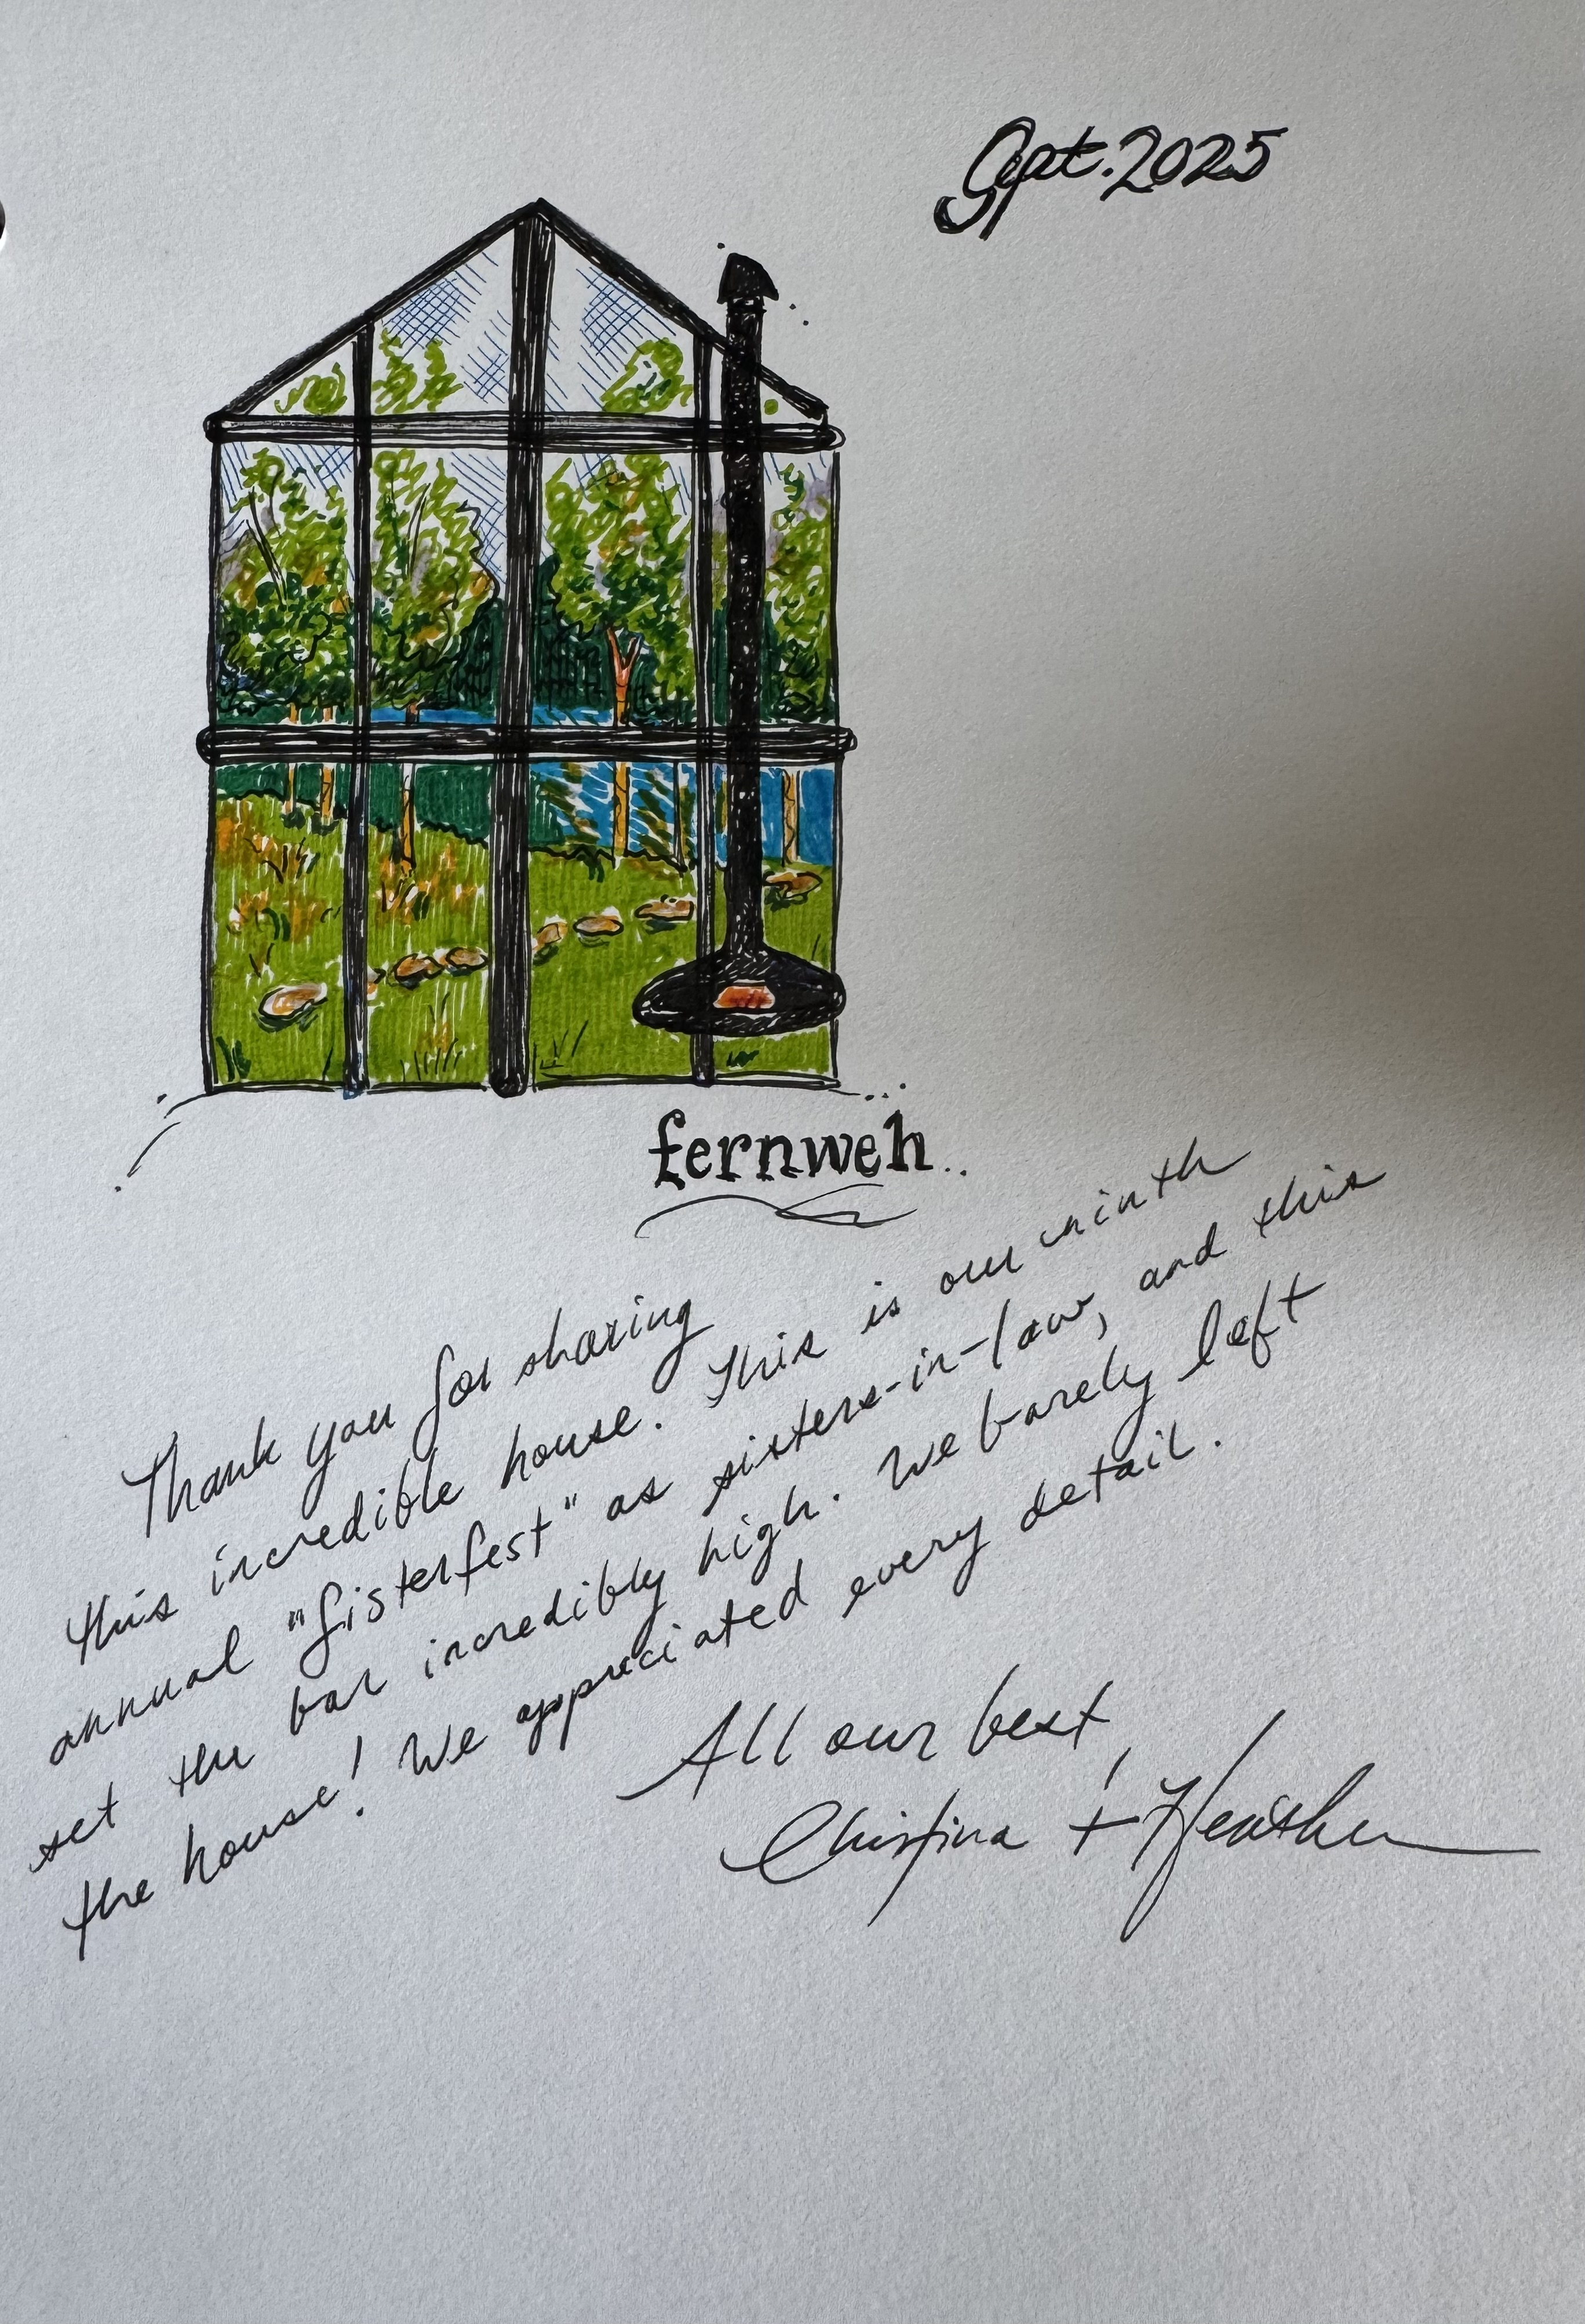 Sept. 2025
fernweh..
Thank you for sharing
this incredible house. This is our ninth
annual "Sisterfest" as sisters-in-law, and this
set the bar incredibly high. We barely left
the house! We appreciated every detail.
All our best,
Christina + Heather